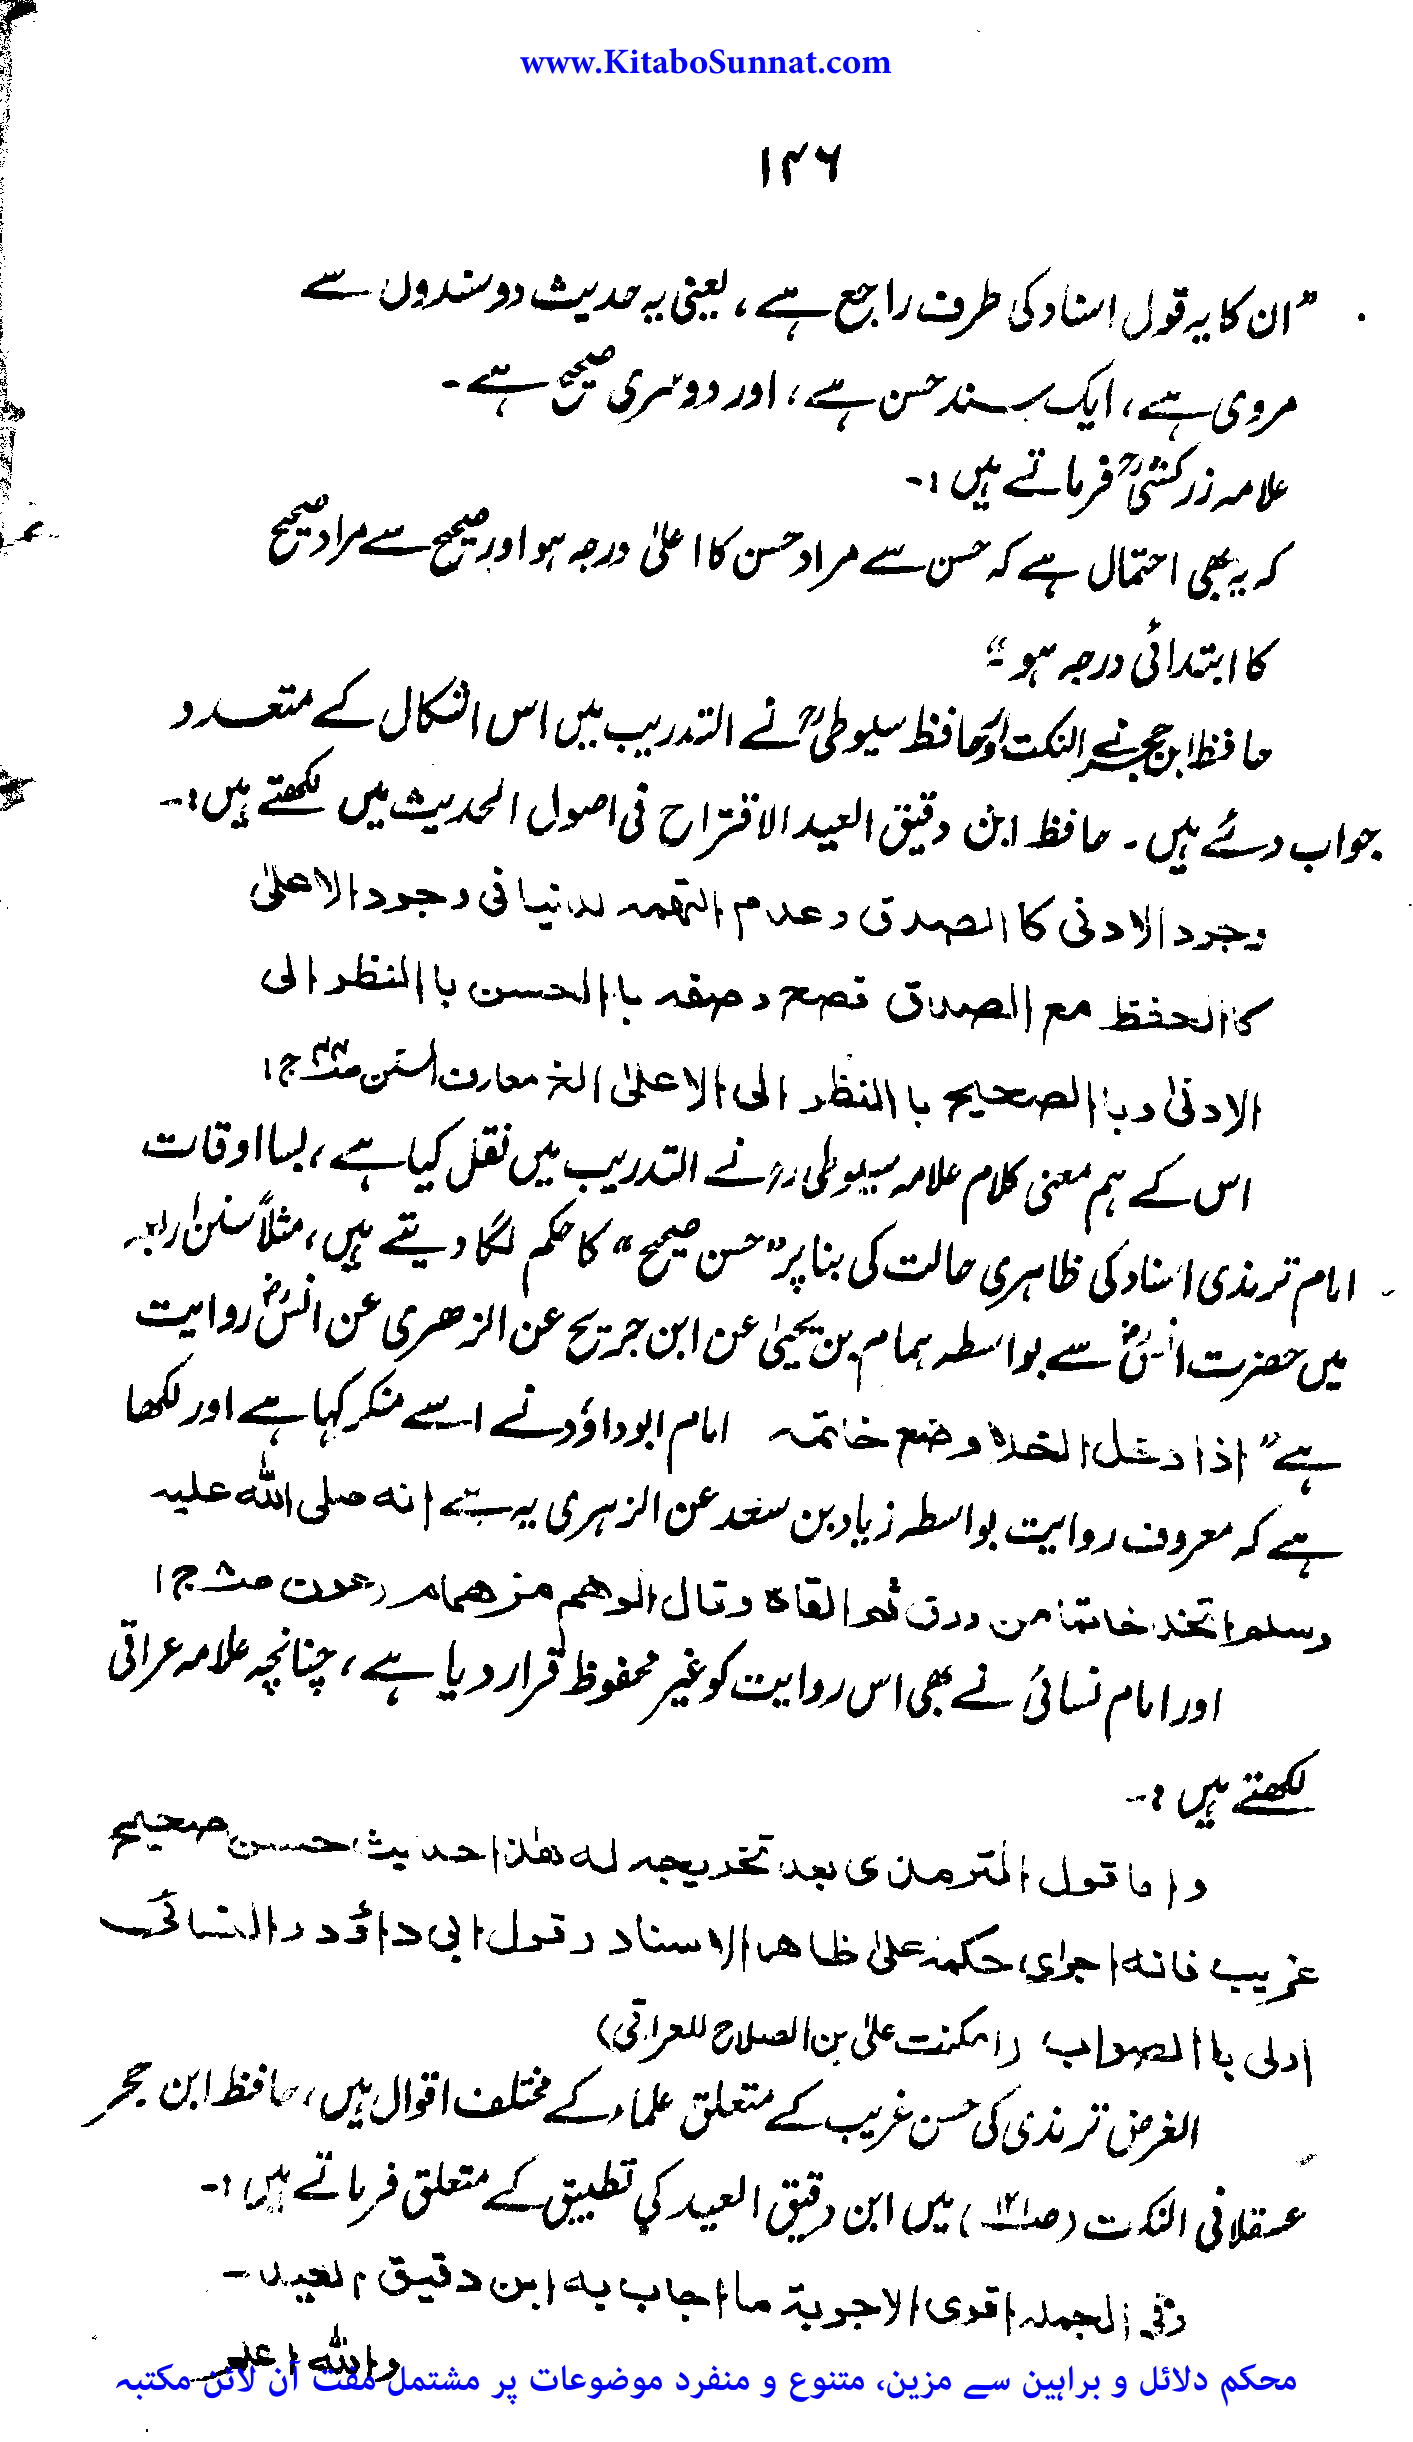 www.KitaboSunnat.com
۱۴۶
”ان کا یہ قول اسناد کی طرف راجع ہے، یعنی یہ حدیث دو سندوں سے
مروی ہے، ایک سند حسن ہے، اور دوسری صحیح ہے۔
علامہ زرکشیؒ فرماتے ہیں :۔
کہ یہ بھی احتمال ہے کہ حسن سے مراد حسن کا اعلیٰ درجہ ہو اور صحیح سے مراد صحیح
کا ابتدائی درجہ ہو۔“
حافظ ابن حجر نے النکت اور حافظ سیوطیؒ نے التدریب میں اس اشکال کے متعدد
جواب دئے ہیں۔ حافظ ابن دقیق العید الاقتراح فی اصول الحدیث میں لکھتے ہیں :۔
وجود الادنی کا الصدق و عدم التهمه لدنیا فی وجود الاعلیٰ
کا الحفظ مع الصداق فصح وصفه با الحسن با النظر الی
الادنیٰ و با الصحیح با النظر الی الاعلیٰ الخ معارف السنن ص۴۴ ج۱
اس کے ہم معنی کلام علامہ سیوطی رح نے التدریب میں نقل کیا ہے، بسا اوقات
امام ترمذی اسناد کی ظاہری حالت کی بنا پر ”حسن صحیح“ کا حکم لگا دیتے ہیں، مثلاً سنن اربعہ
میں حضرت انسؓ سے بواسطہ ہمام بن یحییٰ عن ابن جریج عن الزھری عن انسؓ روایت
ہے ”اذا دخل الخلاء وضع خاتمه امام ابوداؤد نے اسے منکر کہا ہے اور لکھا
ہے کہ معروف روایت بواسطہ زیاد بن سعد عن الزہری یہ ہے انه صلی الله علیه
وسلم اتخذ خاتما من ورق ثم القاه وقال الوهم من همام (عون ص۸ ج۱
اور امام نسائی نے بھی اس روایت کو غیر محفوظ قرار دیا ہے، چنانچہ علامہ عراقی
لکھتے ہیں :۔
واما قول الترمذی بعد تخریجه له هٰذا حدیث حسن صحیح
غریب فانه اجرای حکمه علیٰ ظاهر الاسناد وقول ابی داؤد والنسائی
اولی با الصواب (النکت علیٰ بن الصلاح للعراقی)
الغرض ترمذی کی حسن غریب کے متعلق علماء کے مختلف اقوال ہیں، حافظ ابن حجر
عسقلانی النکت (ص۱۲۱) میں ابن دقیق العید کی تطبیق کے متعلق فرماتے ہیں :۔
وفی الجمله اقوی الاجوبة ما اجاب به ابن دقیق العید۔
والله اعلم
محکم دلائل و براہین سے مزین، متنوع و منفرد موضوعات پر مشتمل مفت آن لائن مکتبہ